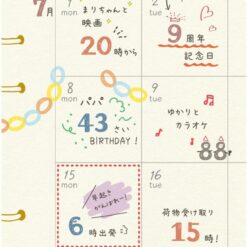 7月
1
mon
まりちゃんと
映画
20時から
2
tue
9周年
記念日
8
mon
パパ
43さい
BIRTHDAY!
9
tue
ゆかりと
カラオケ
15
mon
早起き
がんばれー!
6時出発
16
tue
荷物受け取り
15時!